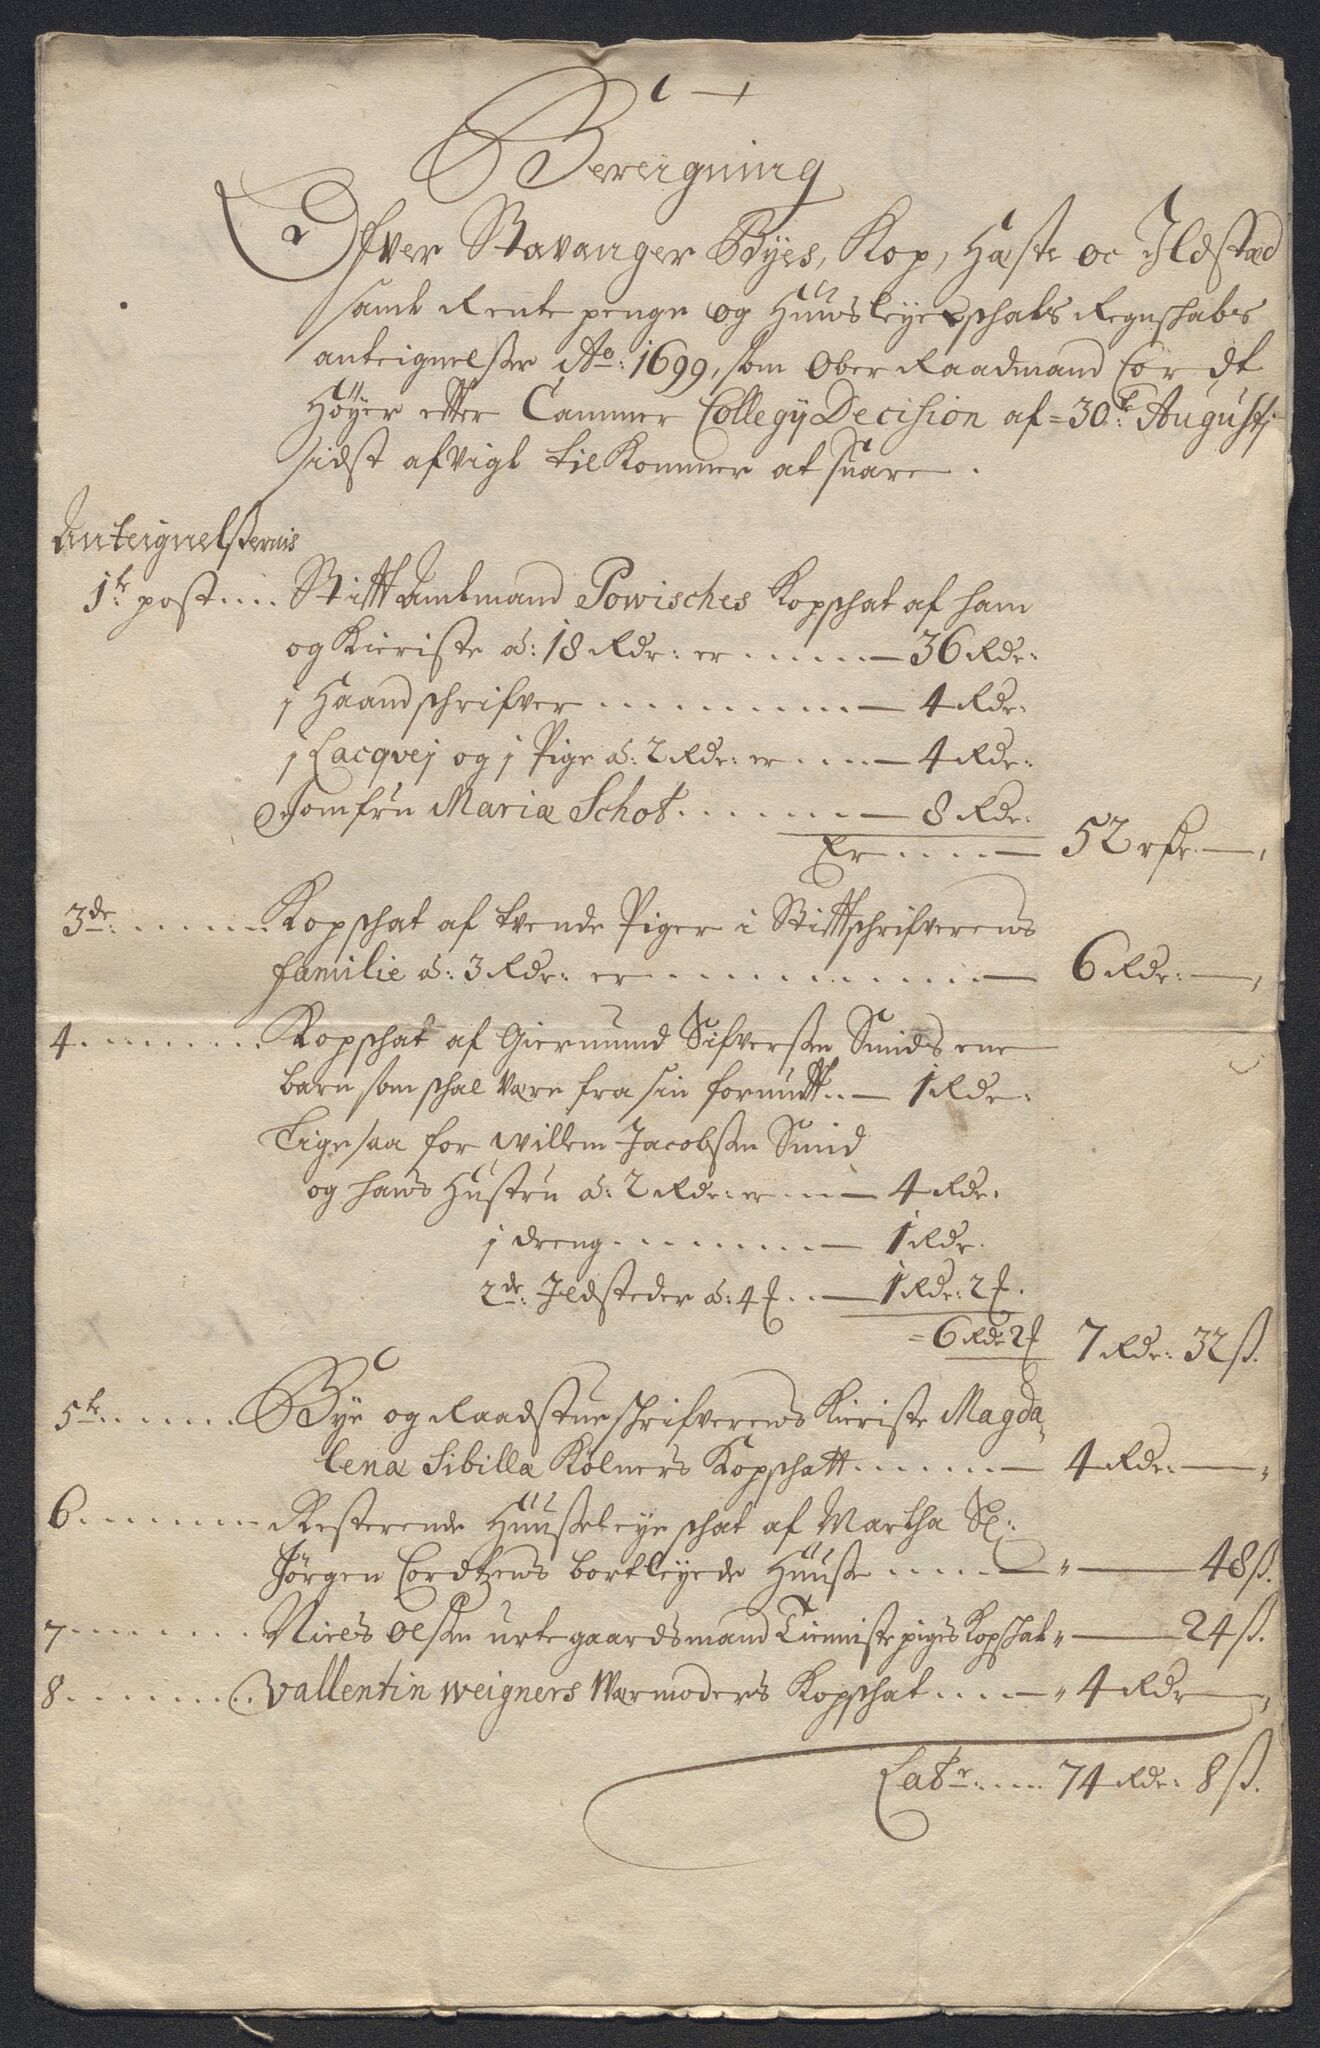 Bereigning
Ofver Stavanger Byes, Kop, Hæste oc Ildstæd
samt Rente penge og Huusleyeschats Regnschabs
anteignelser Ao: 1699, som Ober Raadmand Cor dt
Høyer efter Cammer Collegij Decision af = 30te: Augustj
sidst afvigt tilkommer at suare.
Anteignelsernis
1te: post.... Stifft Amtmand Powisches Kopschat af ham
og Kieriste a: 18 Rdr: er ..... — 36 Rdr:
j Haandschrifver ......... — 4 Rdr:
j Lacqvej og j Pige a: 2 Rdr: er .... — 4 Rdr:
Jomfru Maria Schot ....... — 8 Rdr:
Er .... — 52 rdr. — ,
3de: ...... Kopschat af tvende Piger i Stifftschrifverens
familie a: 3 Rdr: er ........... — 6 Rdr: — ,
4 ........ Kopschat af Giermund Sifversen Smids ene
barn som schal være fra sin fornufft .. — 1 Rdr:
Lige saa for Willem Jacobsen Smid
og hans Hustru a: 2 Rdr: er ... — 4 Rdr:
j dreng ........ — 1 Rdr.
2de: Ildsteder a: 4 ß .. — 1 Rdr: 2 ß.
= 6 Rdr 2 ß 7 Rdr: 32 ß.
5te ...... Bye og Raadstue schrifverens Kieriste Magda
lena Sibilla Kølners Kopschatt ....... — 4 Rdr: — ,
6 ....... Resterende Huusleye schat af Martha Sl:
Jørgen Cordtzens bortleyede Huuse ..... — " — 48 ß.
7 ....... Niels Olsen urtegaardsmand Tienniste piges Kopschat " — 24 ß.
8 ........ Vallentin Weigners Wærmoders Kopschat .... — " 4 Rdr — ,
Latr: .... 74 Rdr: 8 ß.